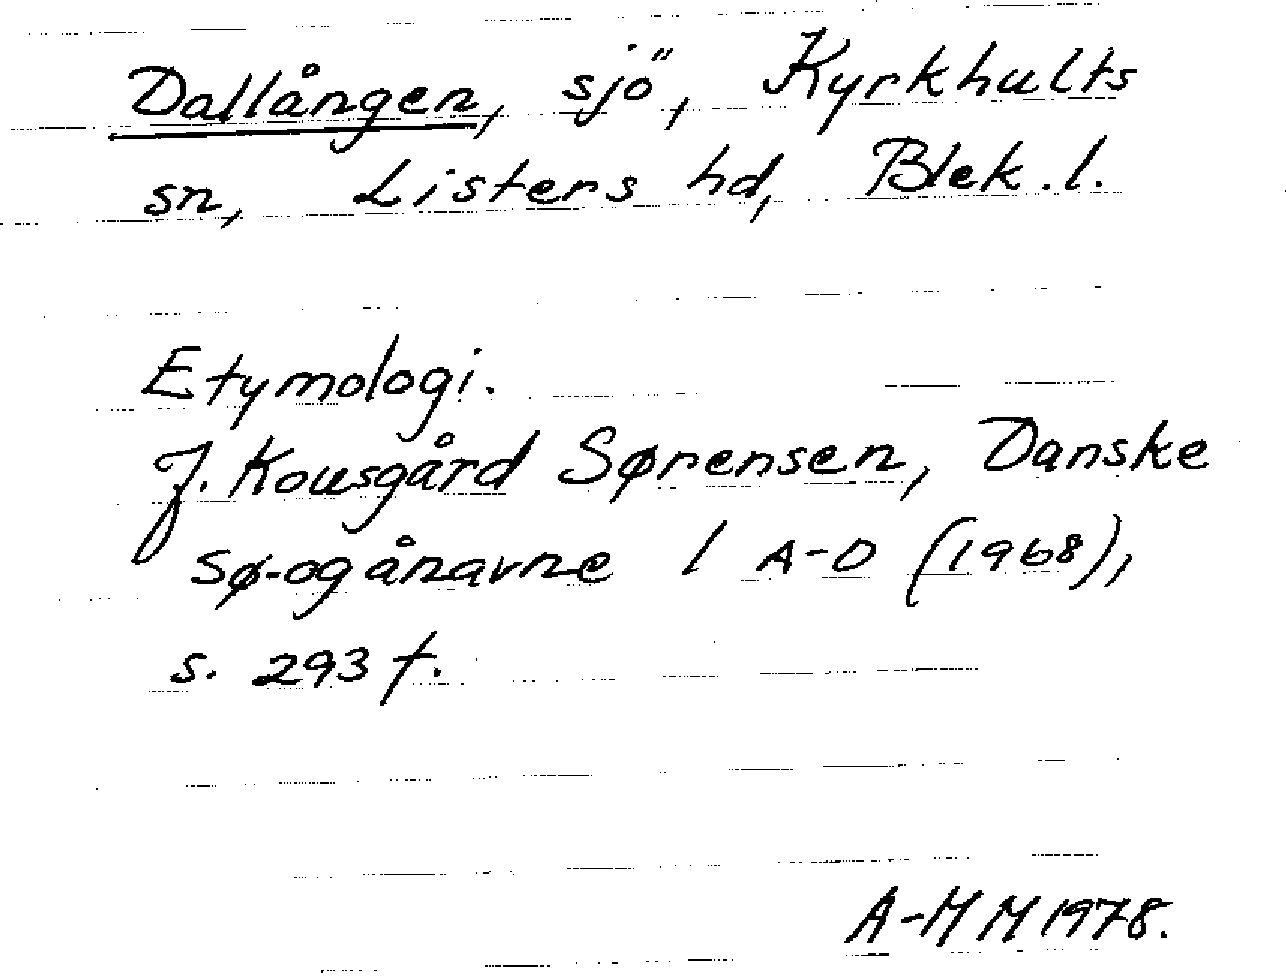 Dallången, sjö, Kyrkhults
sn, Listers hd, Blek. l.
Etymologi.
J. Kousgård Sørensen, Danske
Sø-og ånavne 1 A-D (1968),
s. 293 f.
A-M M 1978.